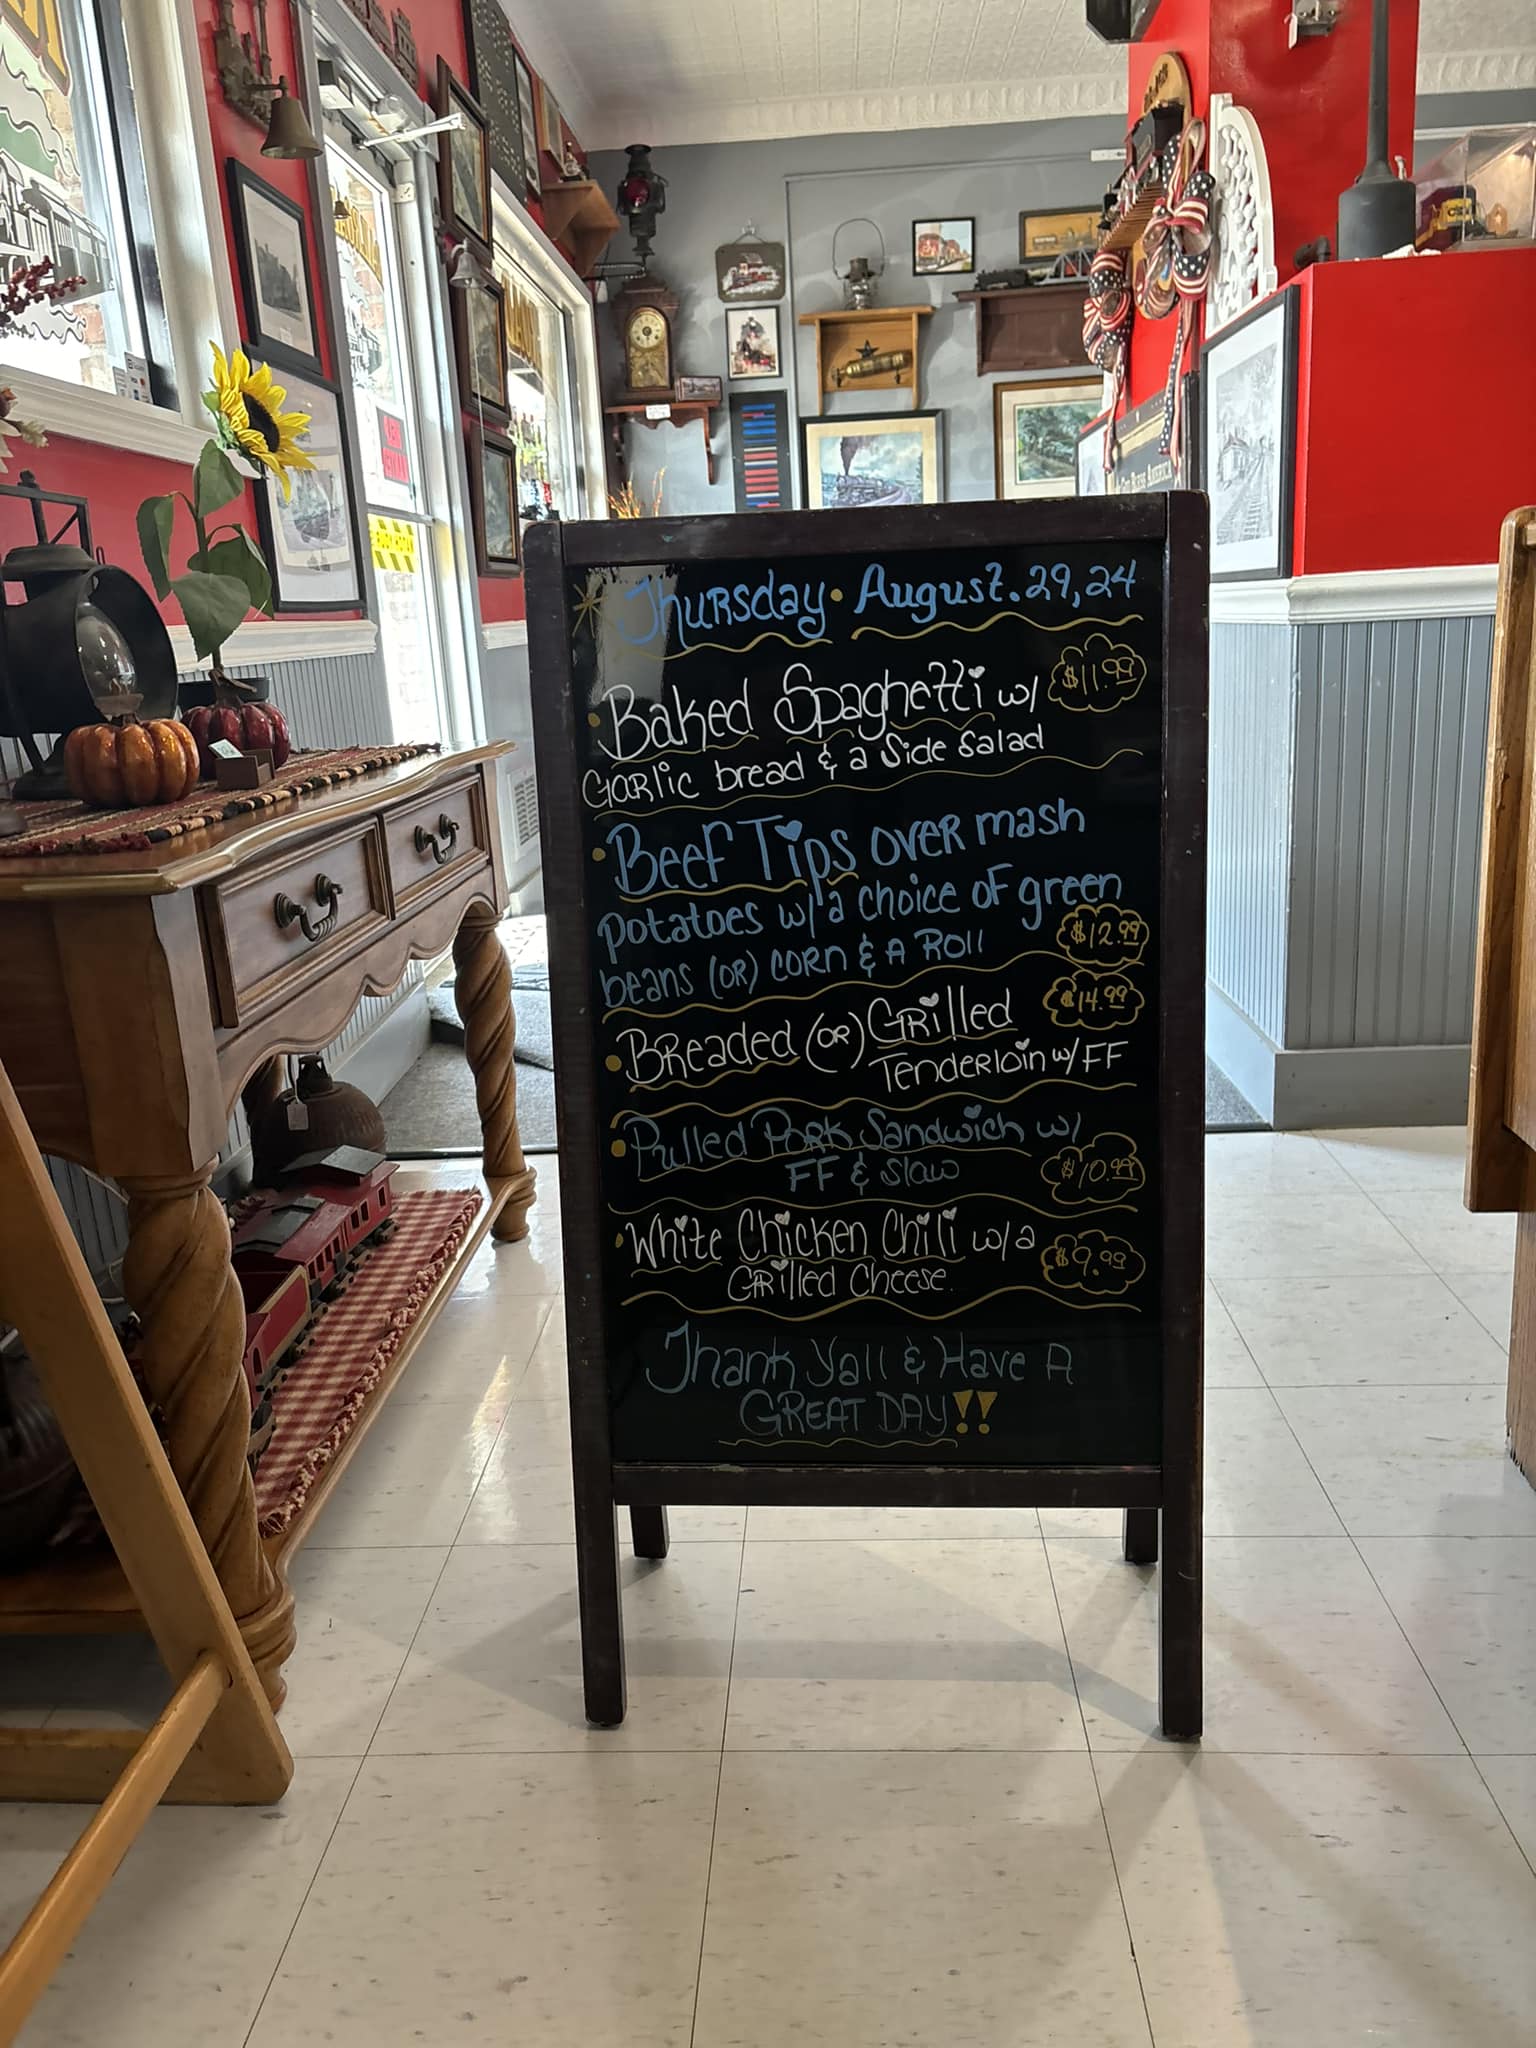 Thursday • August. 29, 24
• Baked Spaghetti w/ $11.99
Garlic bread & a Side Salad
• Beef Tips over mash
potatoes w/a choice of green
beans (OR) corn & A Roll $12.99
• Breaded (OR) Grilled $14.99
Tenderloin w/ FF
• Pulled Pork Sandwich w/
FF & slaw $10.99
• White Chicken Chili w/a $9.99
Grilled Cheese.
Thank Yall & Have A
GREAT DAY!!
GOD BLESS AMERICA